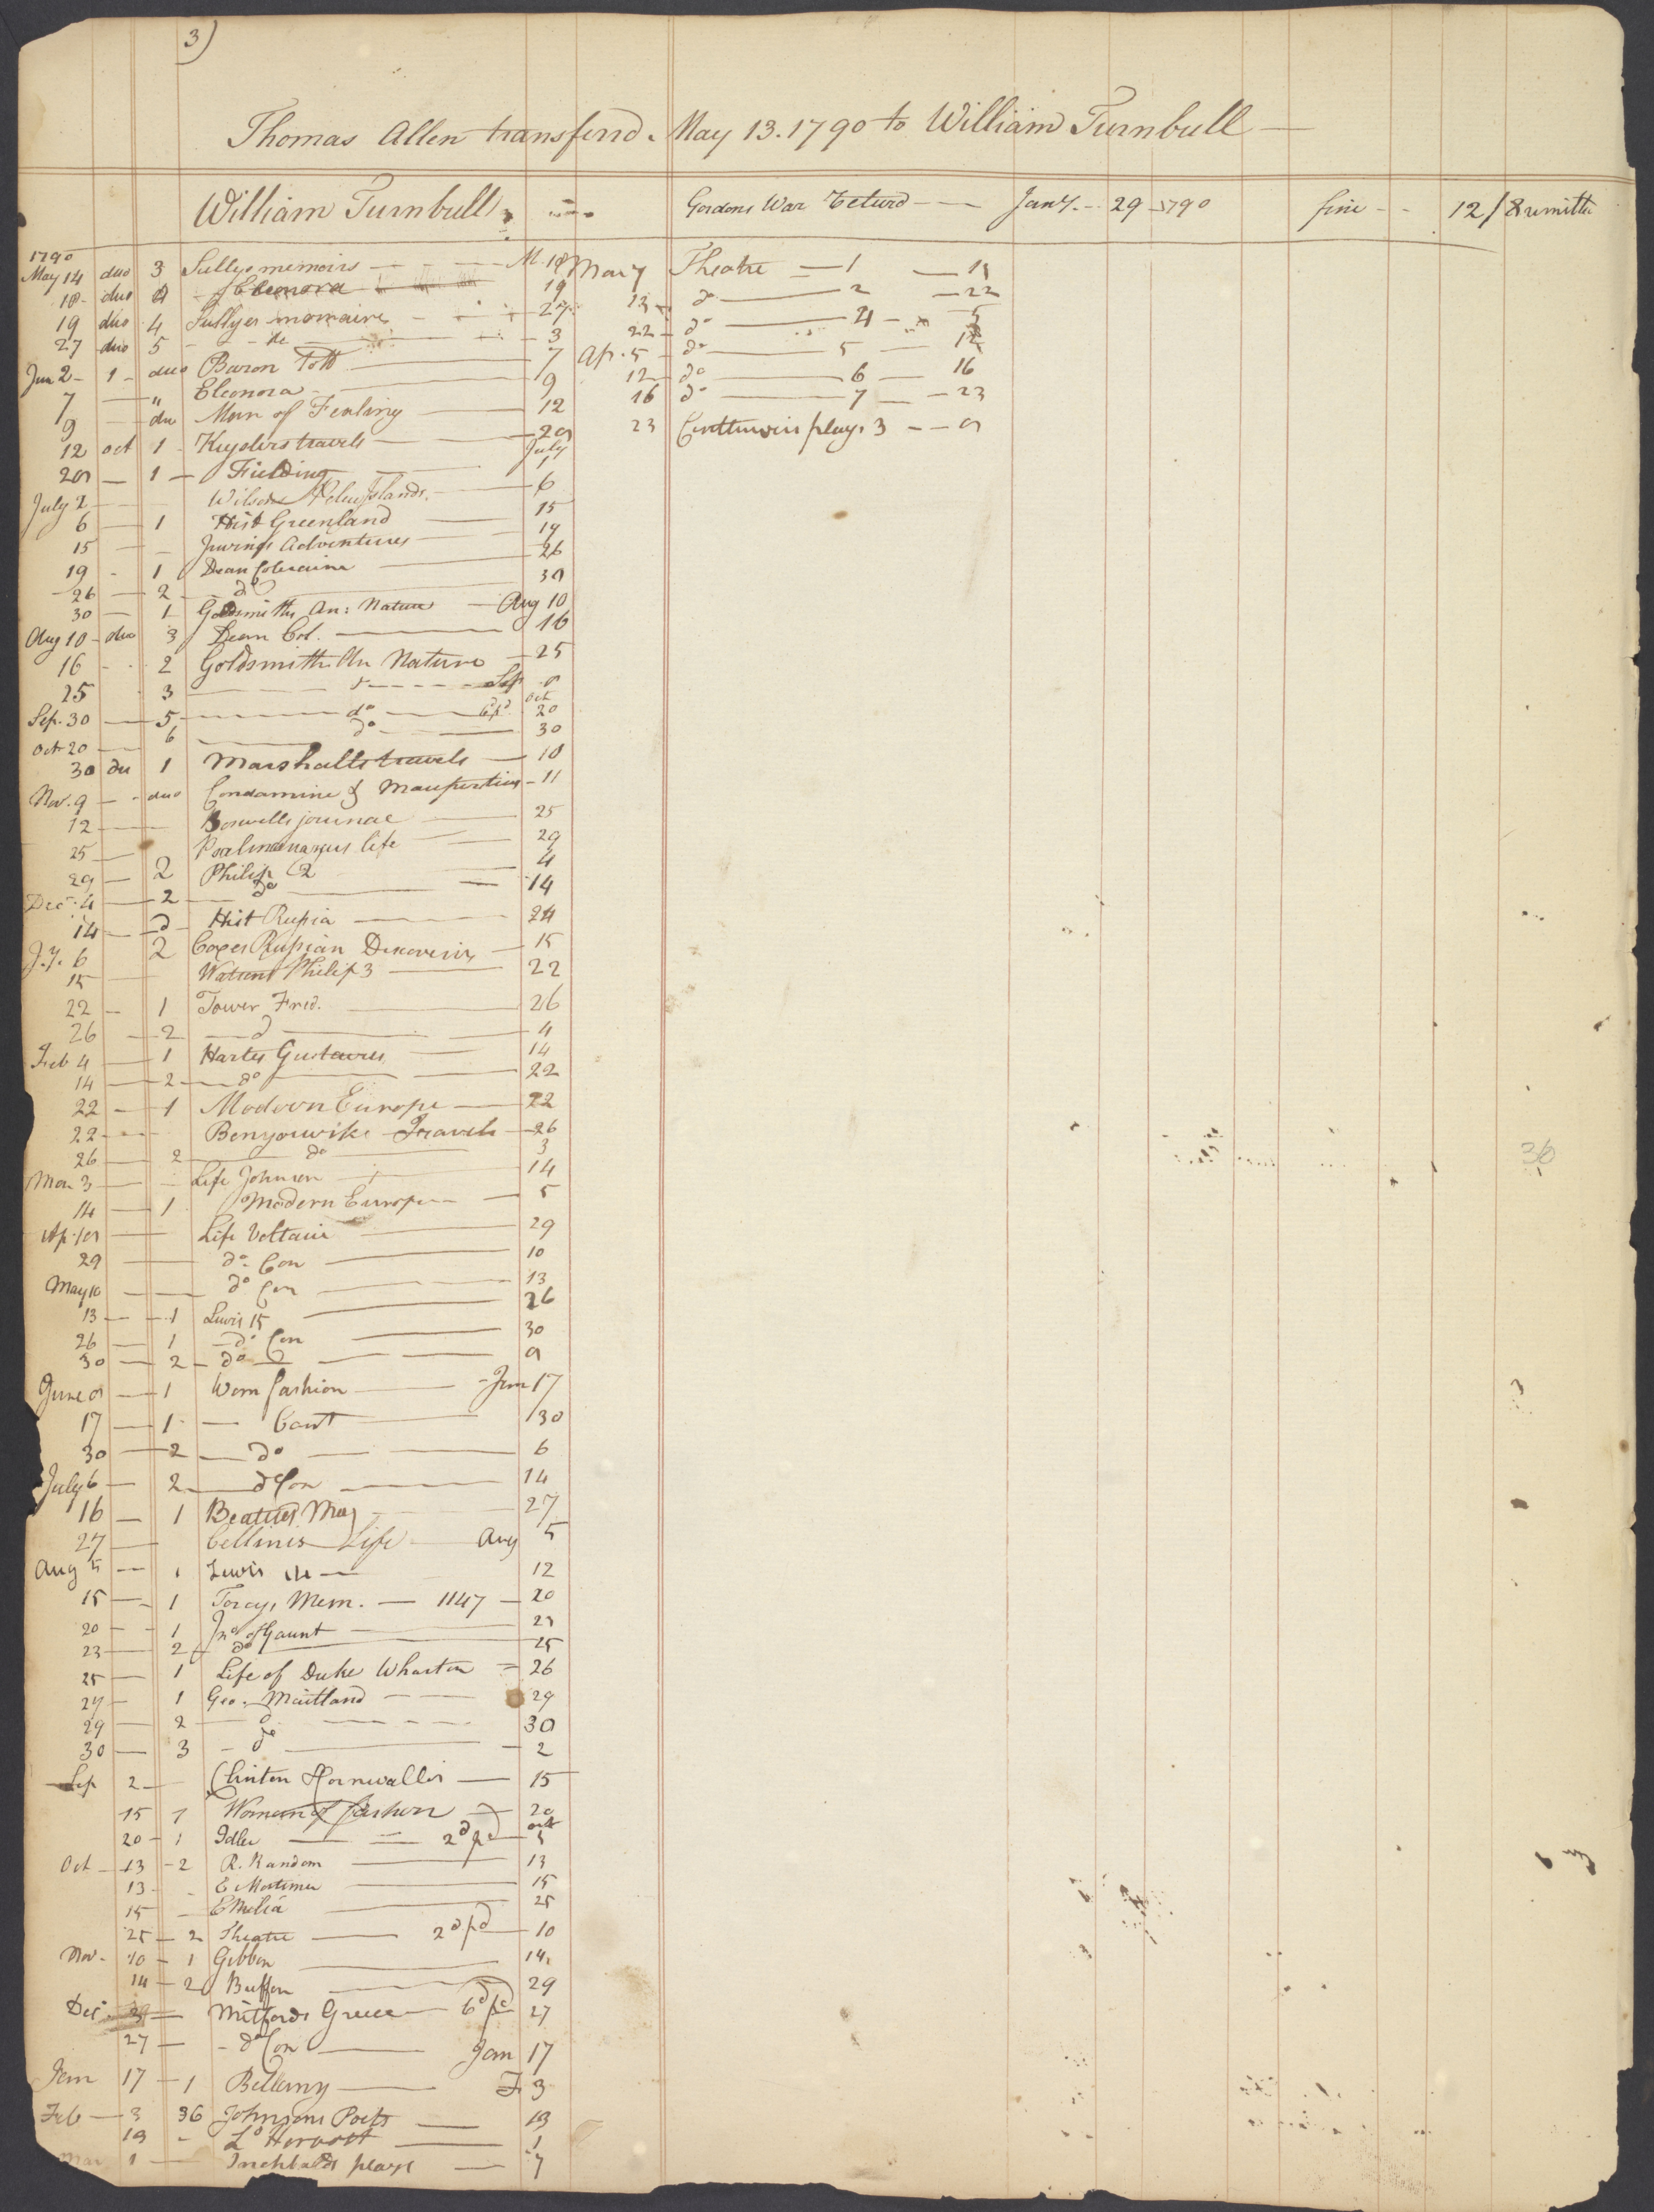 3)
Thomas Allen transferrd. May 13. 1790 to William Turnbull
William Turnbull
Gordons War Returd Jany. 29 1790 fine 12/8 remitted
1790
May 14 duo 3 Sullys memoirs M. 18
18 duo 4 Eleonora 19
19 duo 4 Sullyes momaires 27
27 duo 5 do 3
Jun 2 1 duo Baron Tott 7
7 " Eleonora 9
9 du Man of Fealing 12
12 oct 1 Keyslers travels 29
29 1 Fielding July 1
July 2 Wilsons Pelew Islands 6
6 1 Hist Greenland 15
15 Irwings Adventures 19
19 1 Dean Coleraine 26
26 2 do 30
30 1 Goldsmiths An: Nature Aug 10
Aug 10 duo 3 Dean Col. 16
16 2 Goldsmith An Nature 25
25 3 do Sep
Sep. 30 5 do Oct 20
Oct 20 6 do 30
30 du 1 Marshalls travels 10
Nov. 9 duo Condamine & Maupertius 11
12 Boswells journal 25
25 Psalmanazars life 29
29 2 Philip 2 4
Dec. 4 2 do 14
14 d Hist Russia 24
J.y. 6 2 Coxes Russian Discoveries 15
15 Watsons Philip 3 22
22 1 Tower Fred. 26
26 2 d 4
Feb 4 1 Hartes Gustavus 14
14 2 do 22
22 1 Modern Europe 22
22 Benyouwiks Travels 26
26 2 do 3
Mar 3 Life Johnson 14
14 1 Modern Europe 5
Ap. Life Voltair 29
29 do Con 10
May 10 do Con 13
13 1 Lewis 15 26
26 1 do Con 30
30 2 do 9
June 9 1 Wom fashion Jun 17
17 1 Cont 30
30 2 do 6
July 6 2 do Con 14
16 1 Beatties 27
27 Cellinis Life Aug 5
Aug 5 1 Lewis 14 12
15 1 Torcys Mem. 1147 20
20 1 Jno of Gaunt 23
23 2 do 25
25 1 Life of Duke Wharton 26
27 1 Geo. Maitland 29
29 2 d 30
30 3 do 2
Sep 2 Clinton Cornwallis 15
15 1 Woman of fashion 20
20 1 Idler 2d pd Oct 5
Oct 13 2 R. Random 13
13 E Mortimer 15
15 Emelia 25
25 2 Theatre 2d pd 10
Nov. 10 1 Gibbon 14
14 2 Buffon 29
Dec. 29 Mitfords Greece 6d pd 27
27 do Con Jan 17
Jan 17 1 Bellamy F 3
Feb 3 36 Johnsons Poets 19
19 Ld 1
Mar 1 Inchbalds plays 7
Mar 7 Theatre 1 13
13 do 2 22
22 do 4 5
Ap. 5 do 5 12
12 do 6 16
16 do 7 23
23 plays 3 9
36